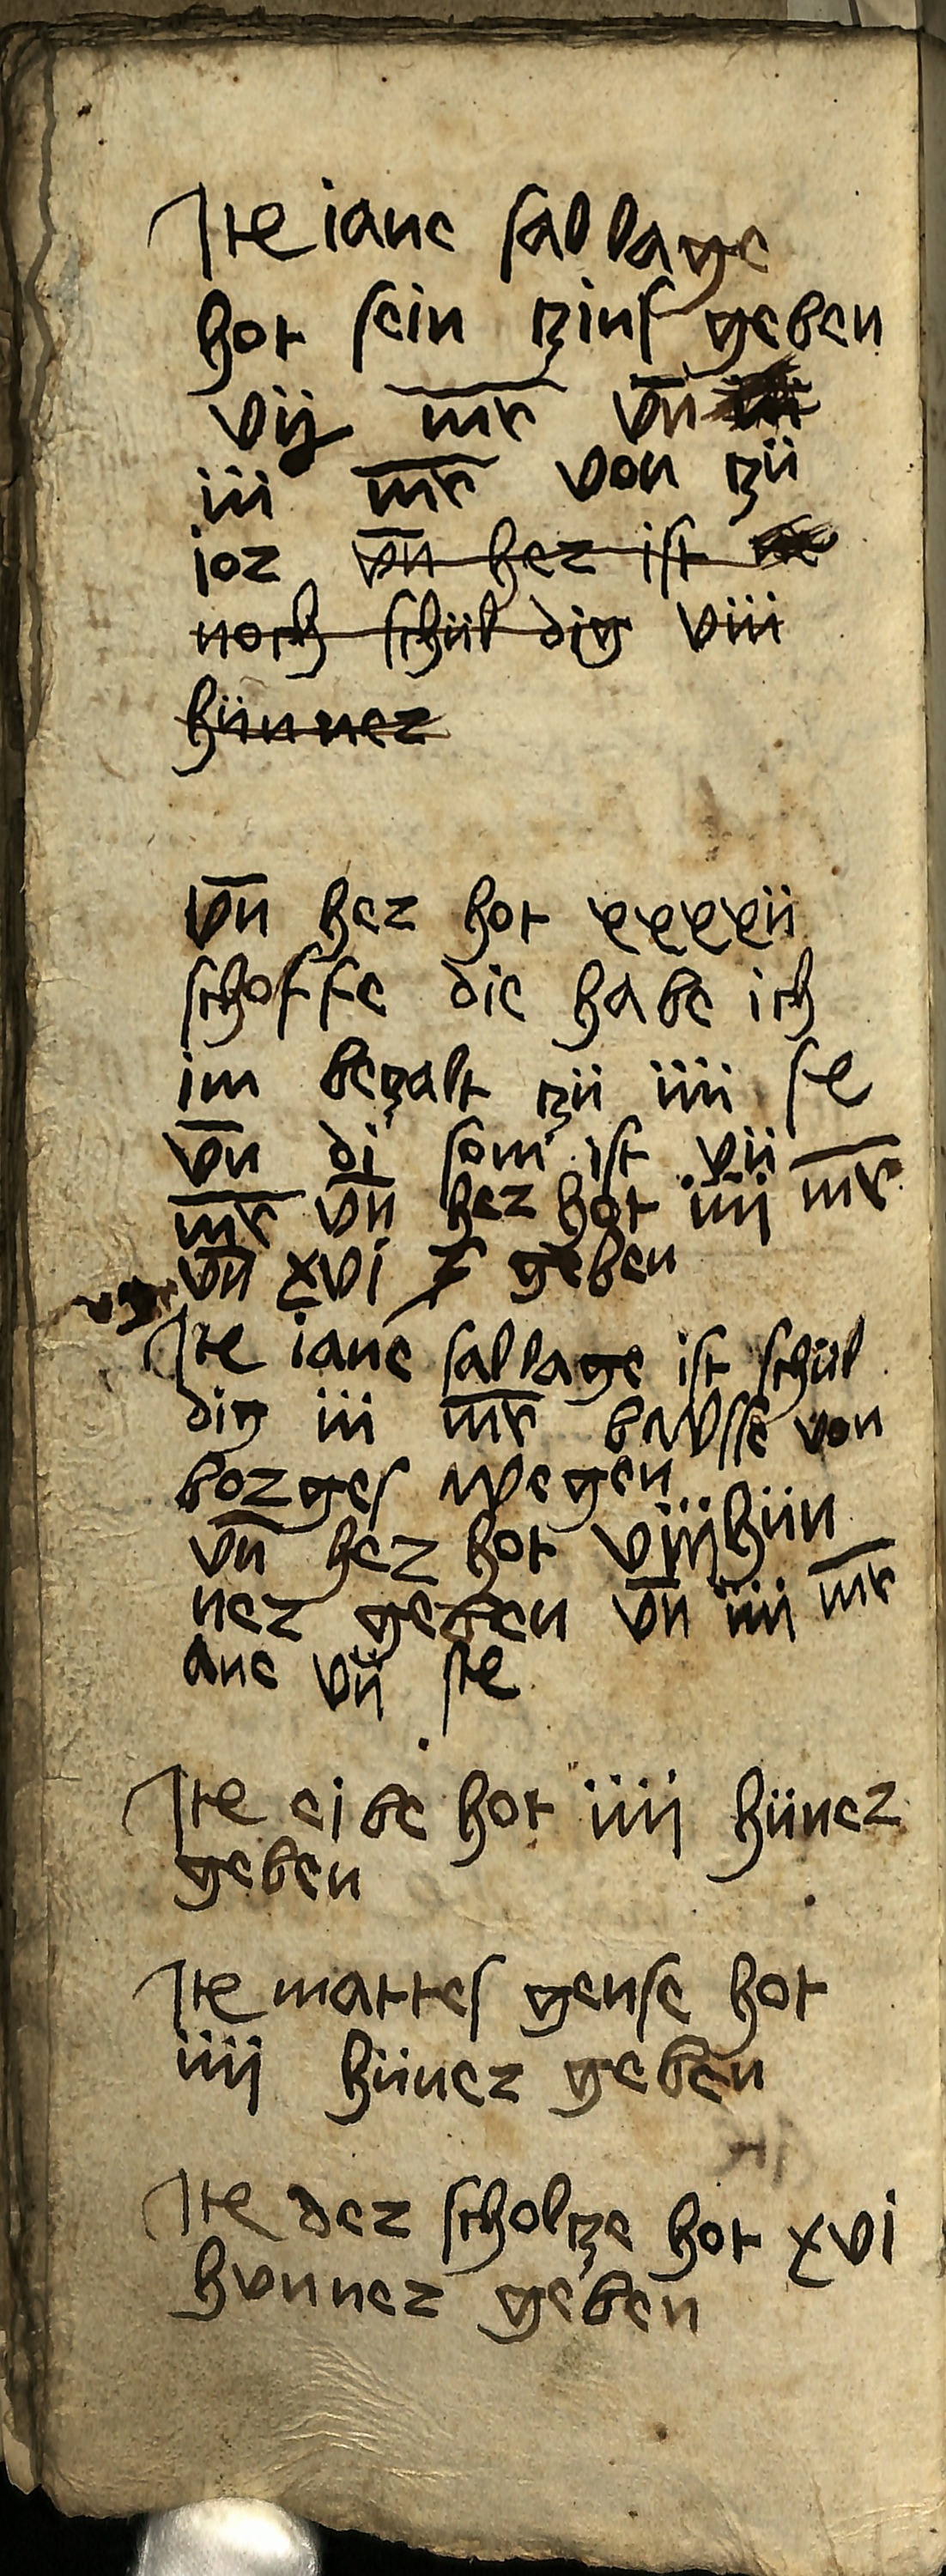 Ite iane sallage
hot sein zins geben
vij mr vn
iii mr von zü
ior vn her ist
noch schül dig viii
hünner
vn her hot xxxxii
schoffe die habe ich
im bezalt zü iiii sc
vn di som ist vii
mr vn her hot iiij mr
vn xvi g geben
Ite iane sallage ist schül
dig iii mr busse von
borges wegen
vn her hot viijhün
ner geben vn iiij mr
ane vij sc
Ite eibe hot iiij hüner
geben
Ite mattes gense hot
iiij hüner geben
Ite der scholze hot xvi
hvnner geben